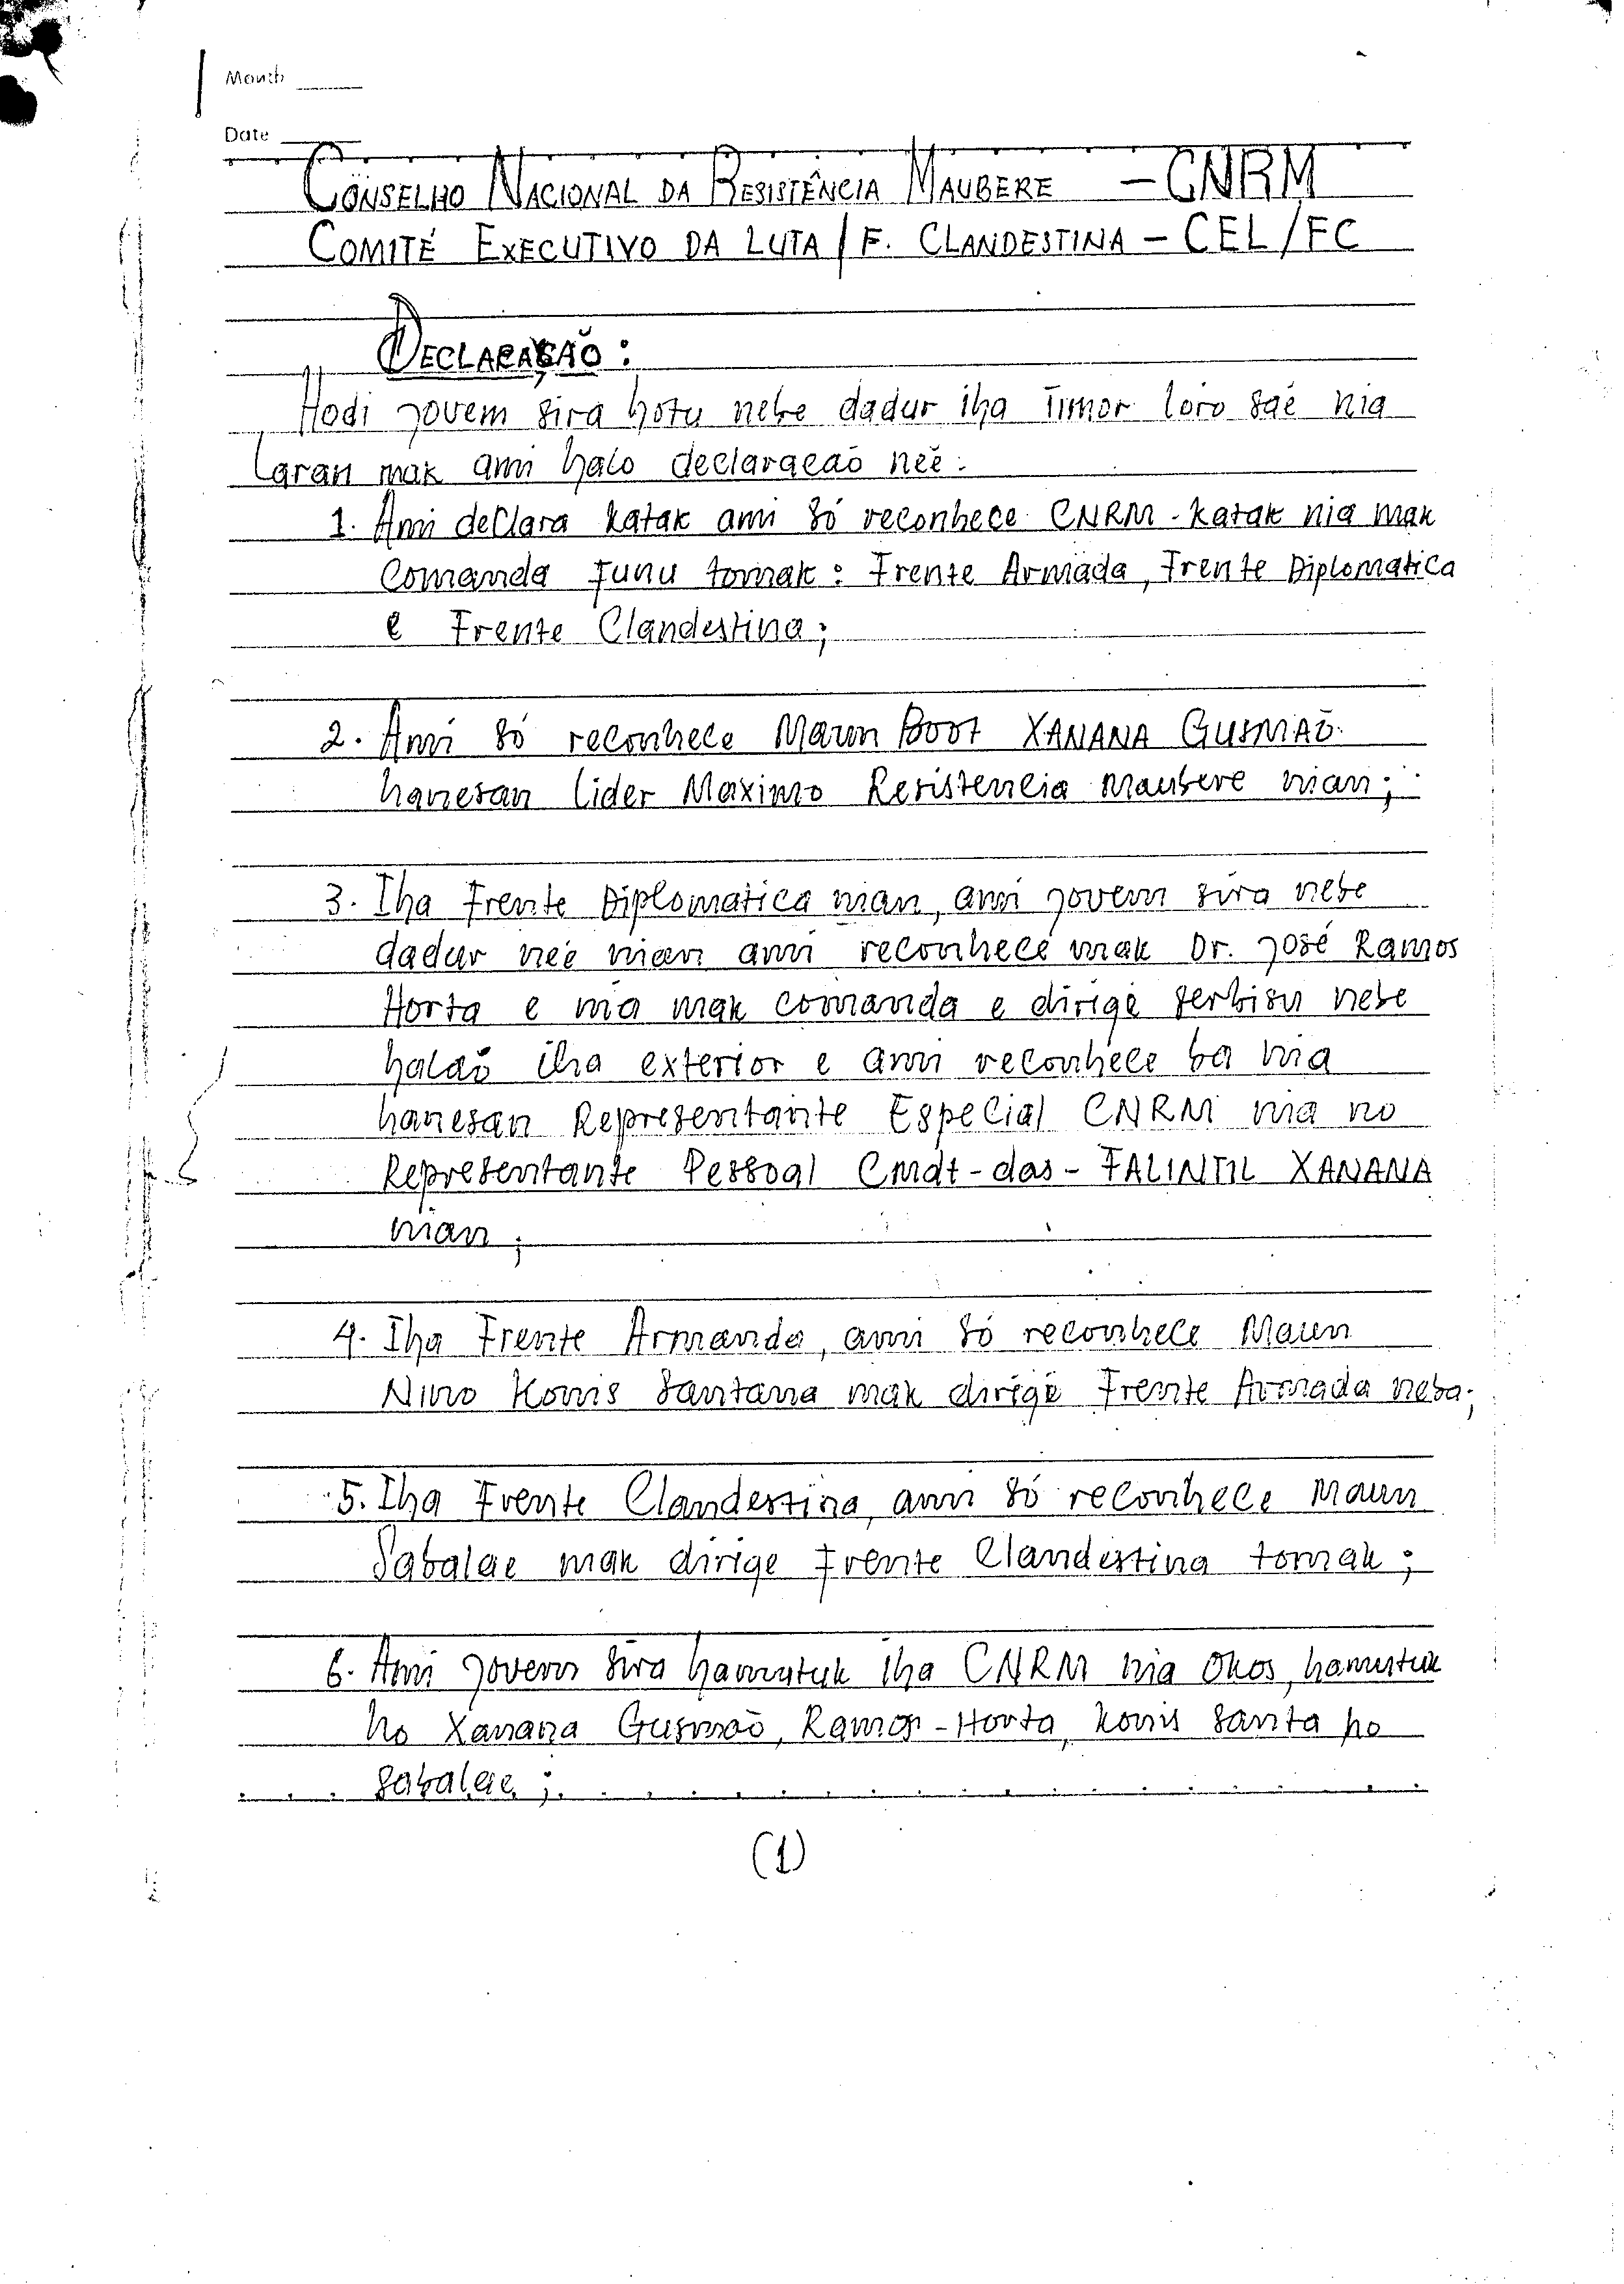 Month
Date
CONSELHO NACIONAL DA RESISTÊNCIA MAUBERE - CNRM
COMITÉ EXECUTIVO DA LUTA / F. CLANDESTINA - CEL/FC
DECLARAÇÃO:
Hodi jovem sira hotu nebe dadur iha Timor loro saé nia
laran mak ami halo declaraçaõ neé:
1. Ami declara katak ami só reconhece CNRM - katak nia mak
Comanda Funu tomak: Frente Armada, Frente Diplomatica
e Frente Clandestina;
2. Ami só reconhece Maun Boot XANANA GUSMAÕ.
hanesan lider Maximo Resistencia maubere nian;
3. Iha Frente Diplomatica nian, ami jovem sira nebe
dadur neé nian ami reconhece mak Dr. José Ramos
Horta e nia mak comanda e dirige serbisu nebe
halaõ iha exterior e ami reconhece ba nia
hanesan Representante Especial CNRM nia no
Representante Pessoal Cmdt-das-FALINTIL XANANA
nian;
4. Iha Frente Armanda, ami só reconhece Maun
Nino Konis Santana mak dirige Frente Armada neba;
5. Iha Frente Clandestina, ami só reconhece Maun
Sabalae mak dirige Frente Clandestina tomak;
6. Ami jovem sira hamutuk iha CNRM nia okos, hamutuk
ho Xanana Gusmaõ, Ramos-Horta, Konis Santa ho
Sabalae;
(1)